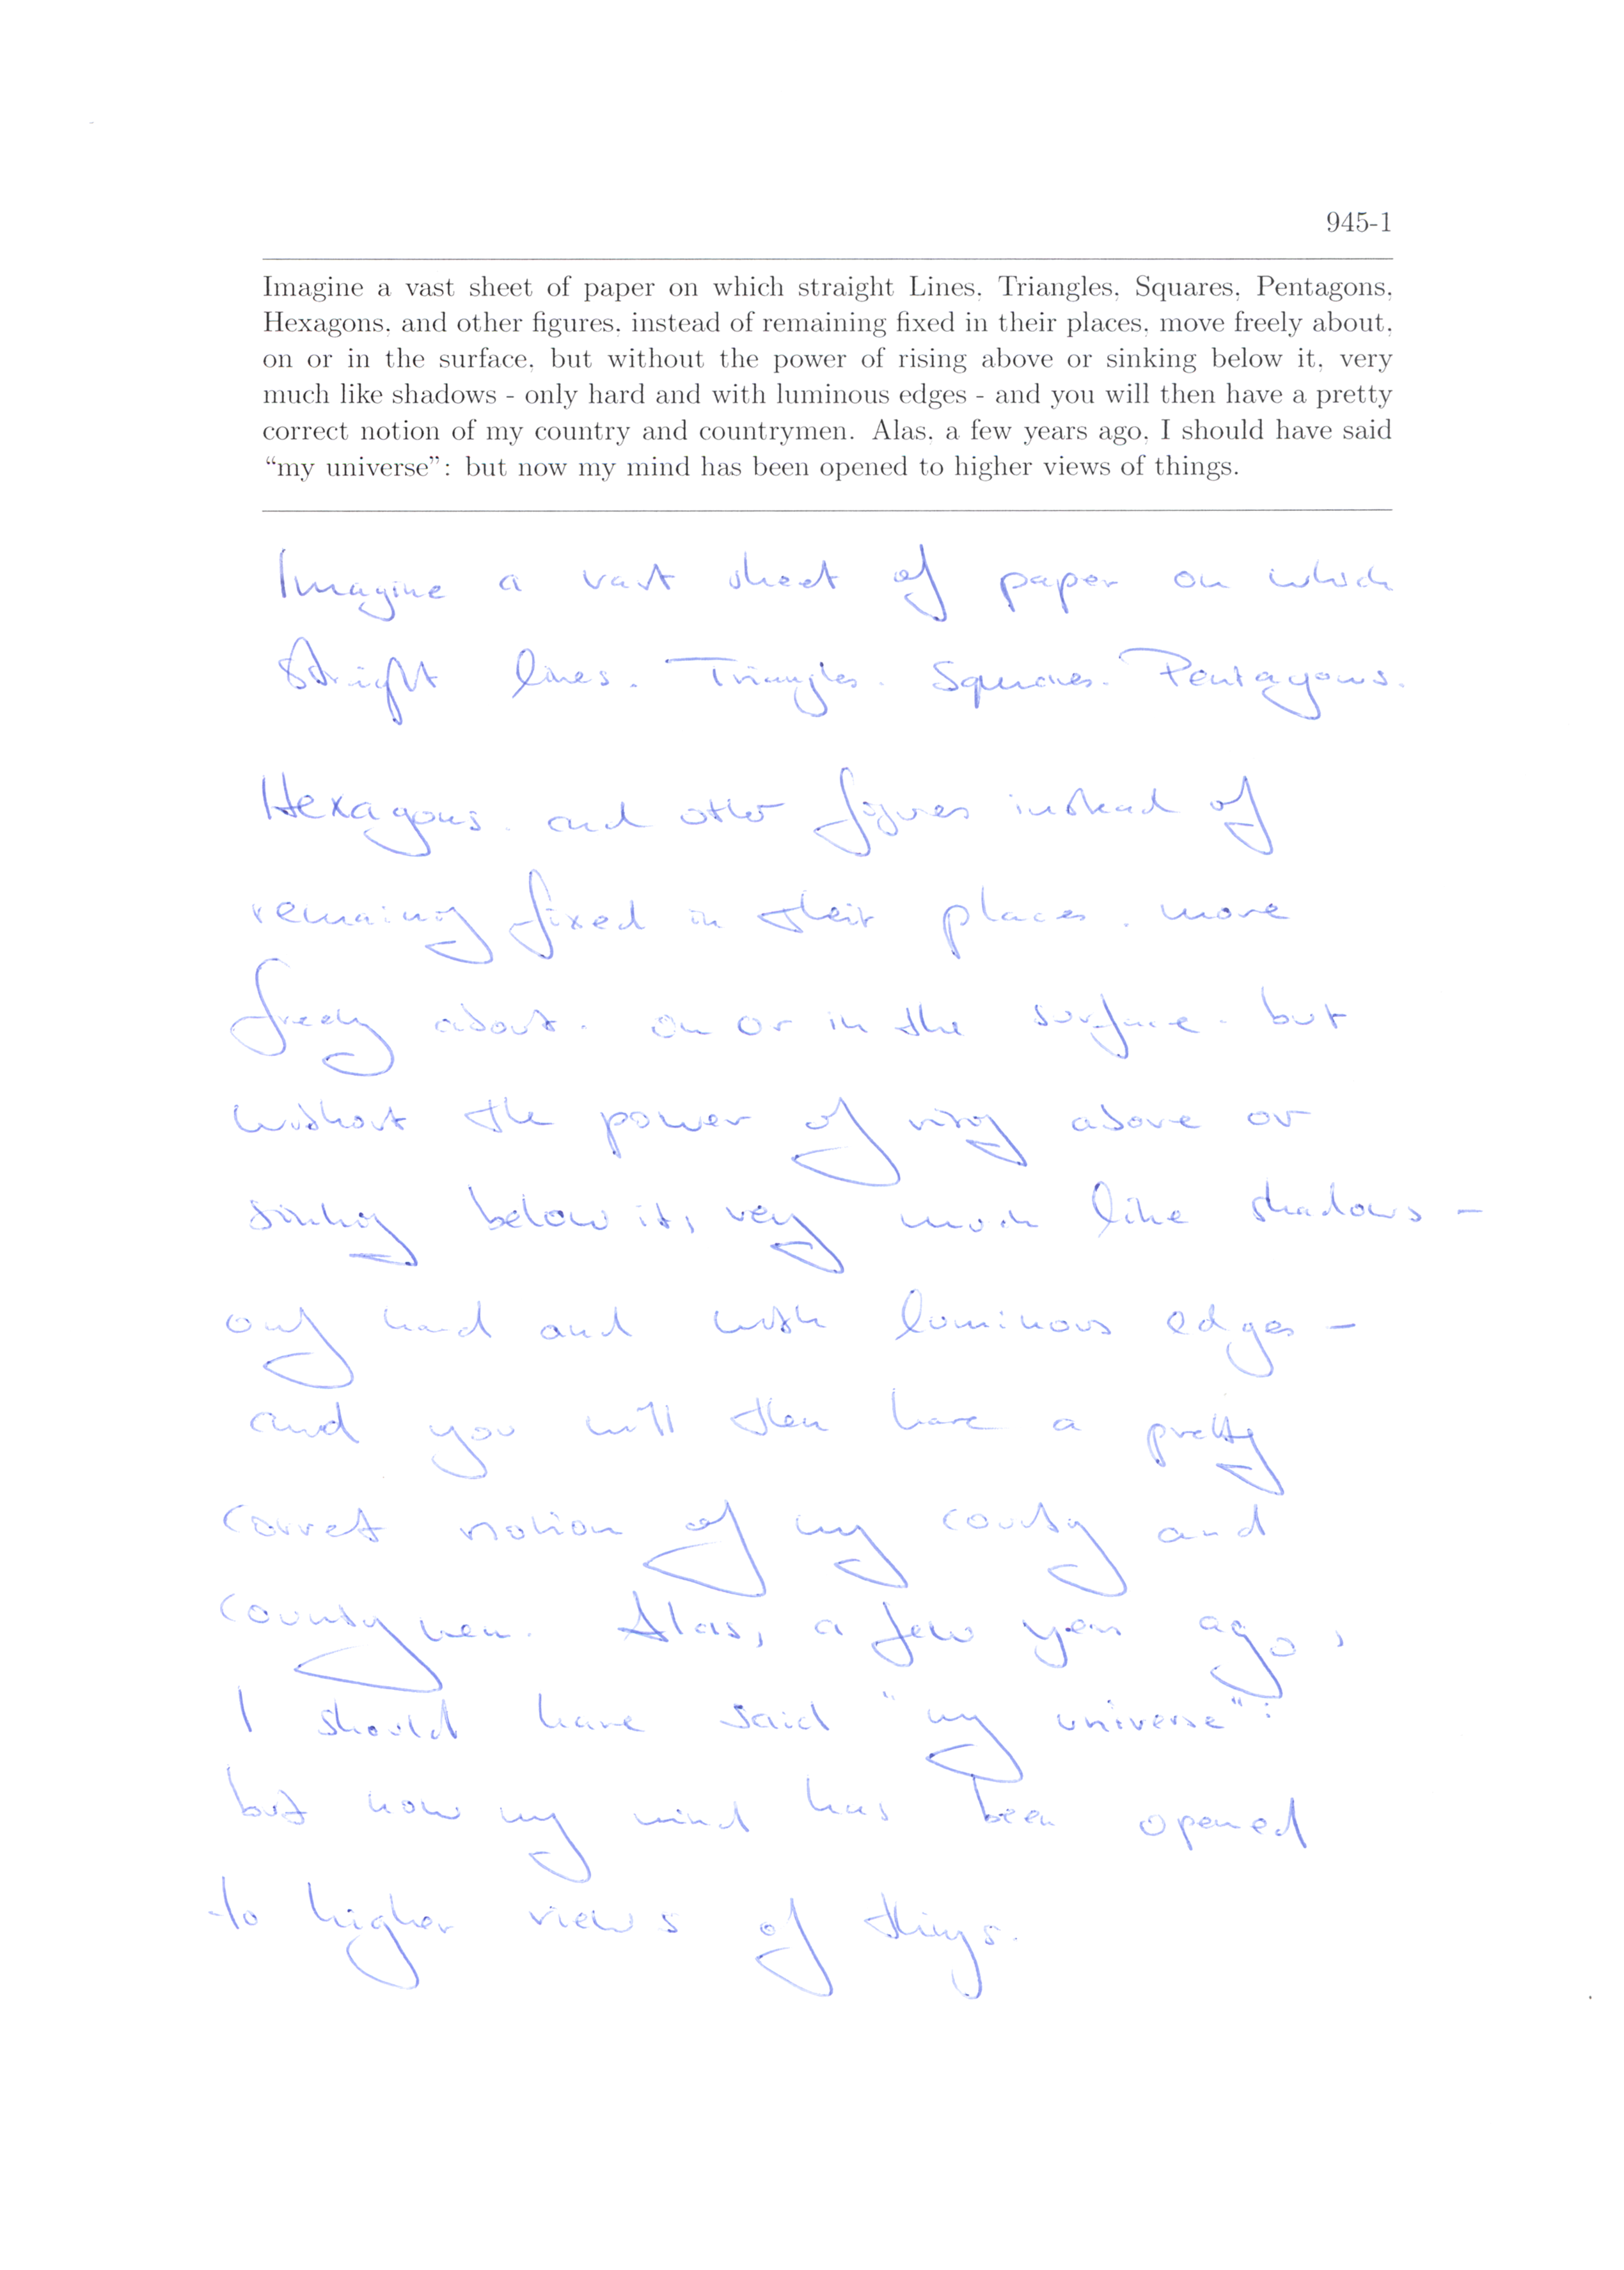 945-1
Imagine a vast sheet of paper on which straight Lines, Triangles, Squares, Pentagons,
Hexagons, and other figures, instead of remaining fixed in their places, move freely about,
on or in the surface, but without the power of rising above or sinking below it, very
much like shadows - only hard and with luminous edges - and you will then have a pretty
correct notion of my country and countrymen. Alas, a few years ago, I should have said
“my universe”: but now my mind has been opened to higher views of things.
Imagine a vast sheet of paper on which
Straight lines. Triangles. Squares. Pentagons.
Hexagons. and other figures instead of
remaining fixed in their places. move
freely about. on or in the surface. but
without the power of rising above or
sinking below it, very much like shadows -
only hard and with luminous edges -
and you will then have a pretty
correct notion of my country and
countrymen. Alas, a few years ago,
I should have said "my universe":
but now my mind has been opened
to higher views of things.